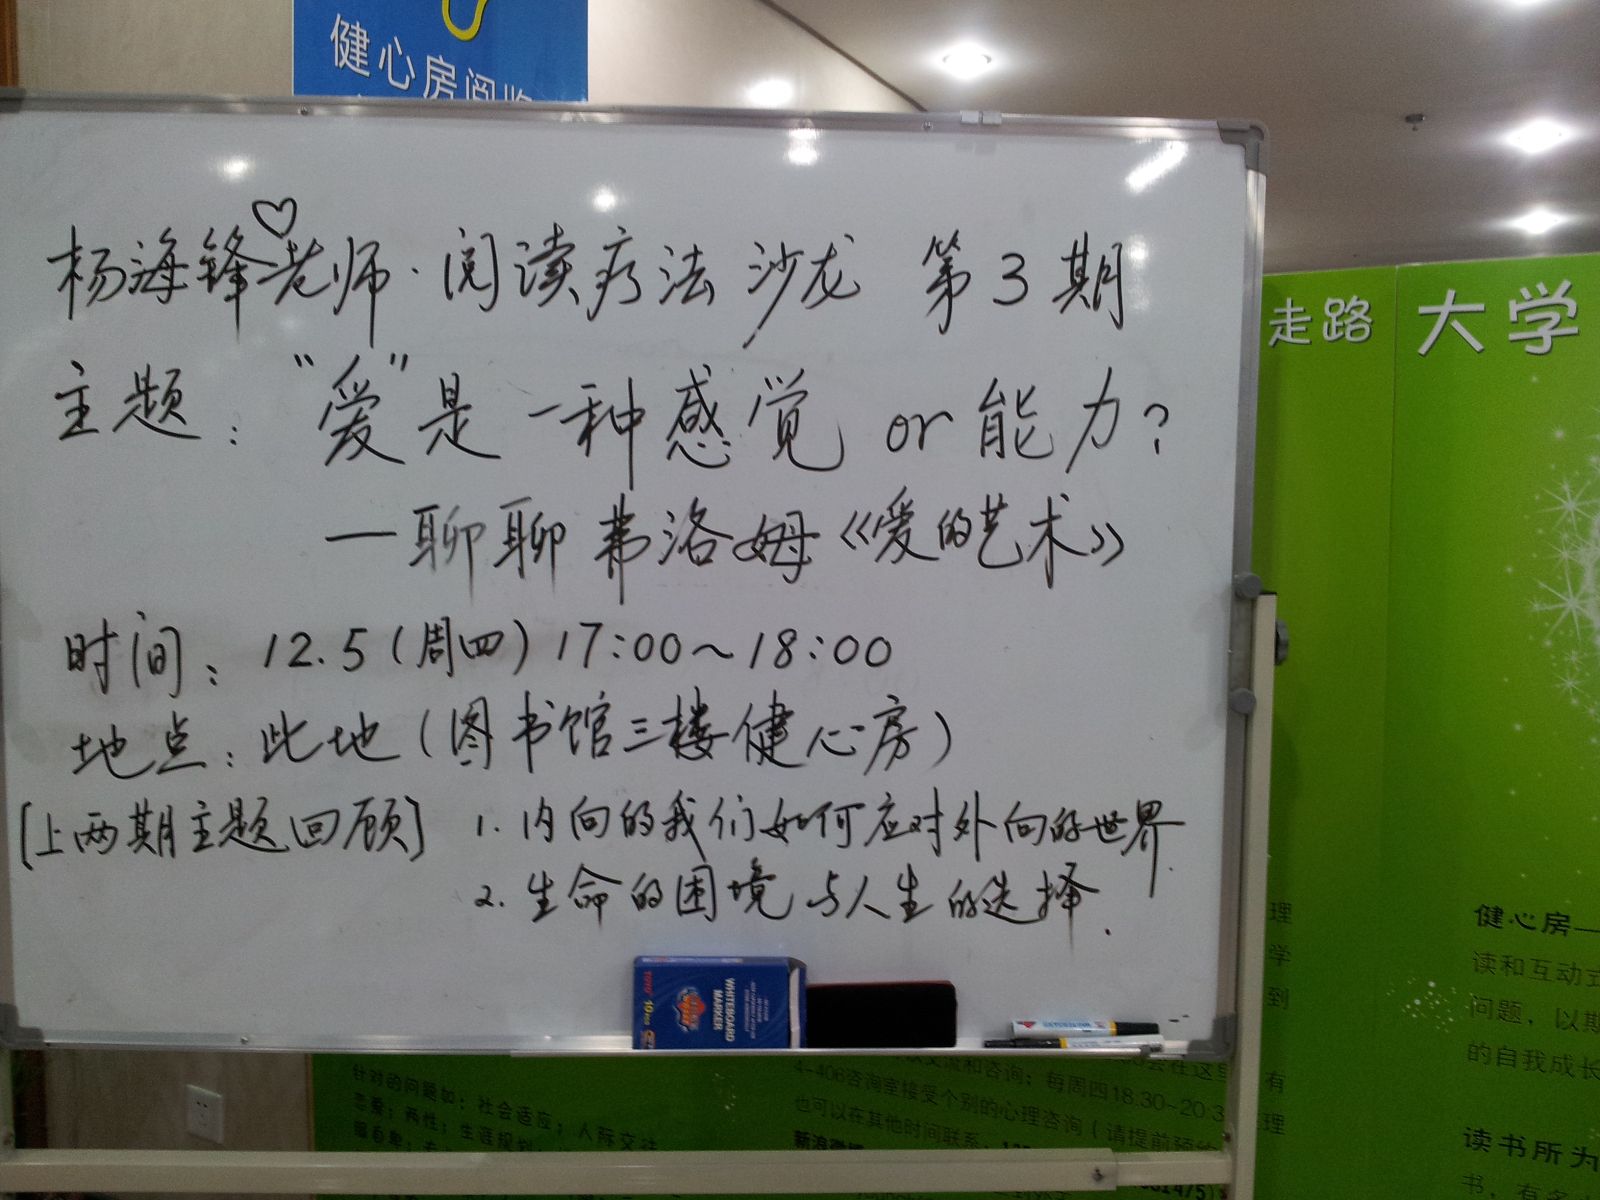 健心房阅览
杨海锋老师·阅读疗法沙龙 第3期
主题："爱"是一种感觉 or 能力？
—聊聊弗洛姆《爱的艺术》
时间：12.5（周四）17:00～18:00
地点：此地（图书馆三楼健心房）
[上两期主题回顾] 1. 内向的我们如何应对外向的世界
2. 生命的困境与人生的选择.
走路 大学
理
学
到
健心房—
读和互动式
问题，以期
的自我成长
有
理
读书所为
TOYO 10 PCS
WHITEBOARD
MARKER
交流和咨询；每周四18:30~20:3
4-406咨询室接受个别的心理咨询（请提前预约
也可以在其他时间联系：
新浪微
针对的问题如：社会适应；人际交往
恋爱；两性；生涯规划